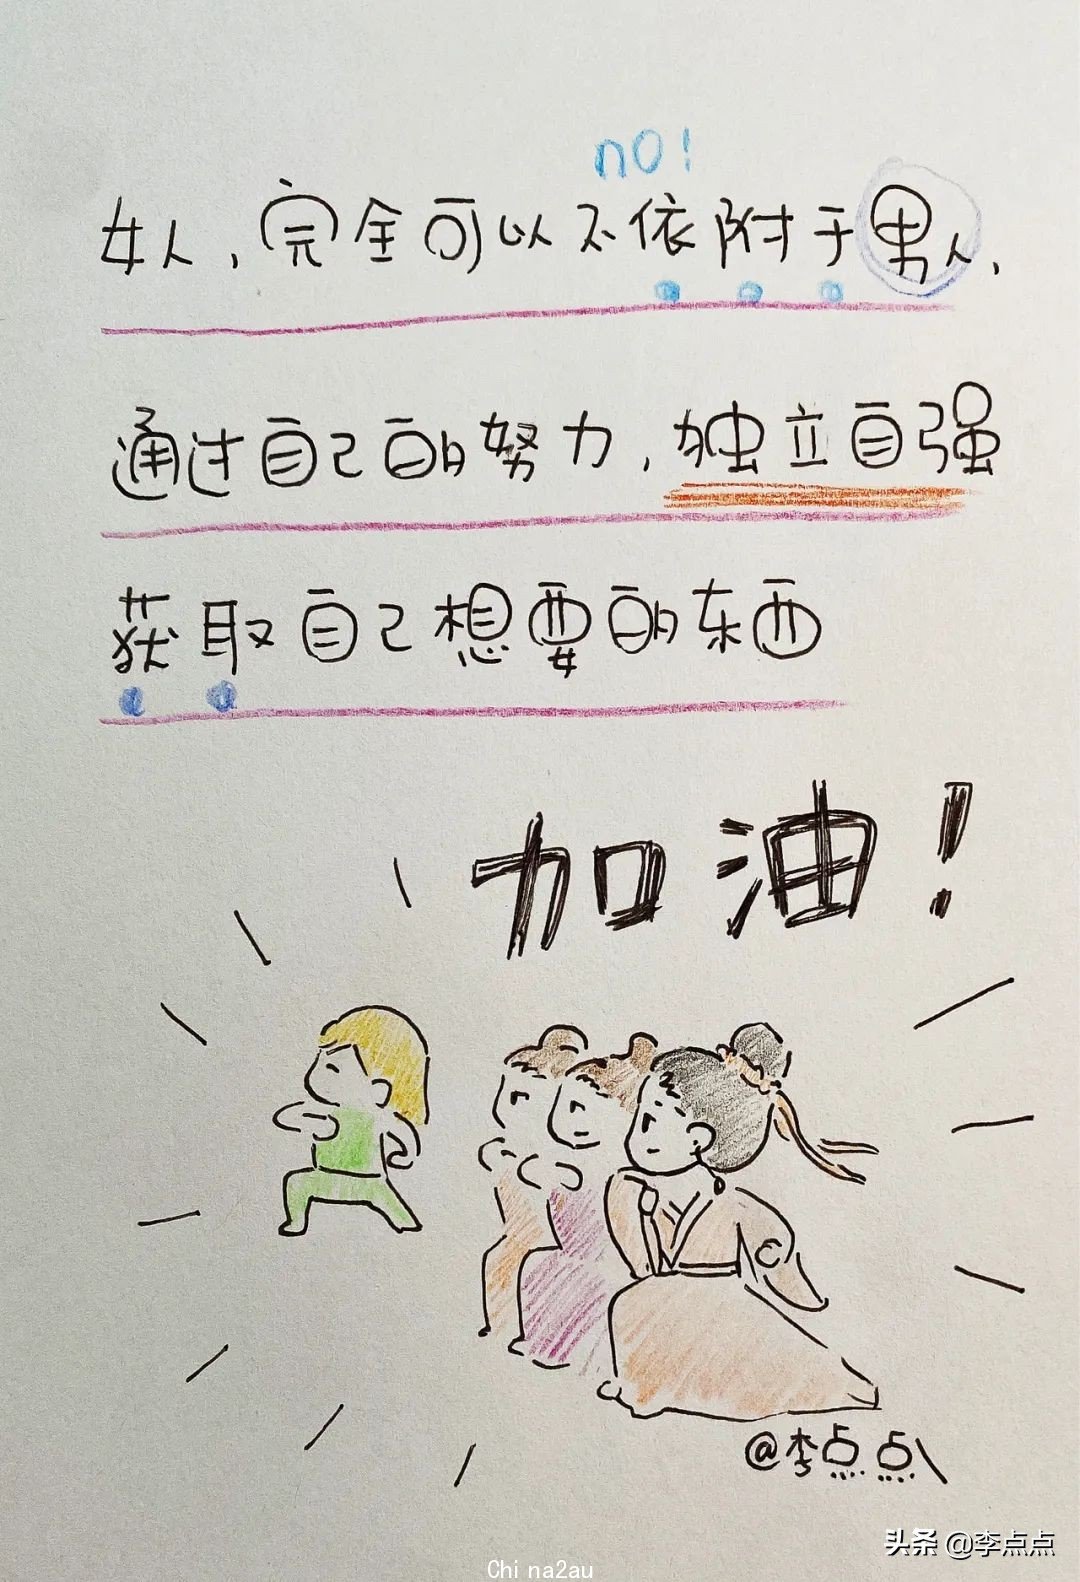 no!
女人,完全可以不依附于男人,
通过自己的努力,独立自强
获取自己想要的东西
加油!
@李点点
头条 @李点点
China2au